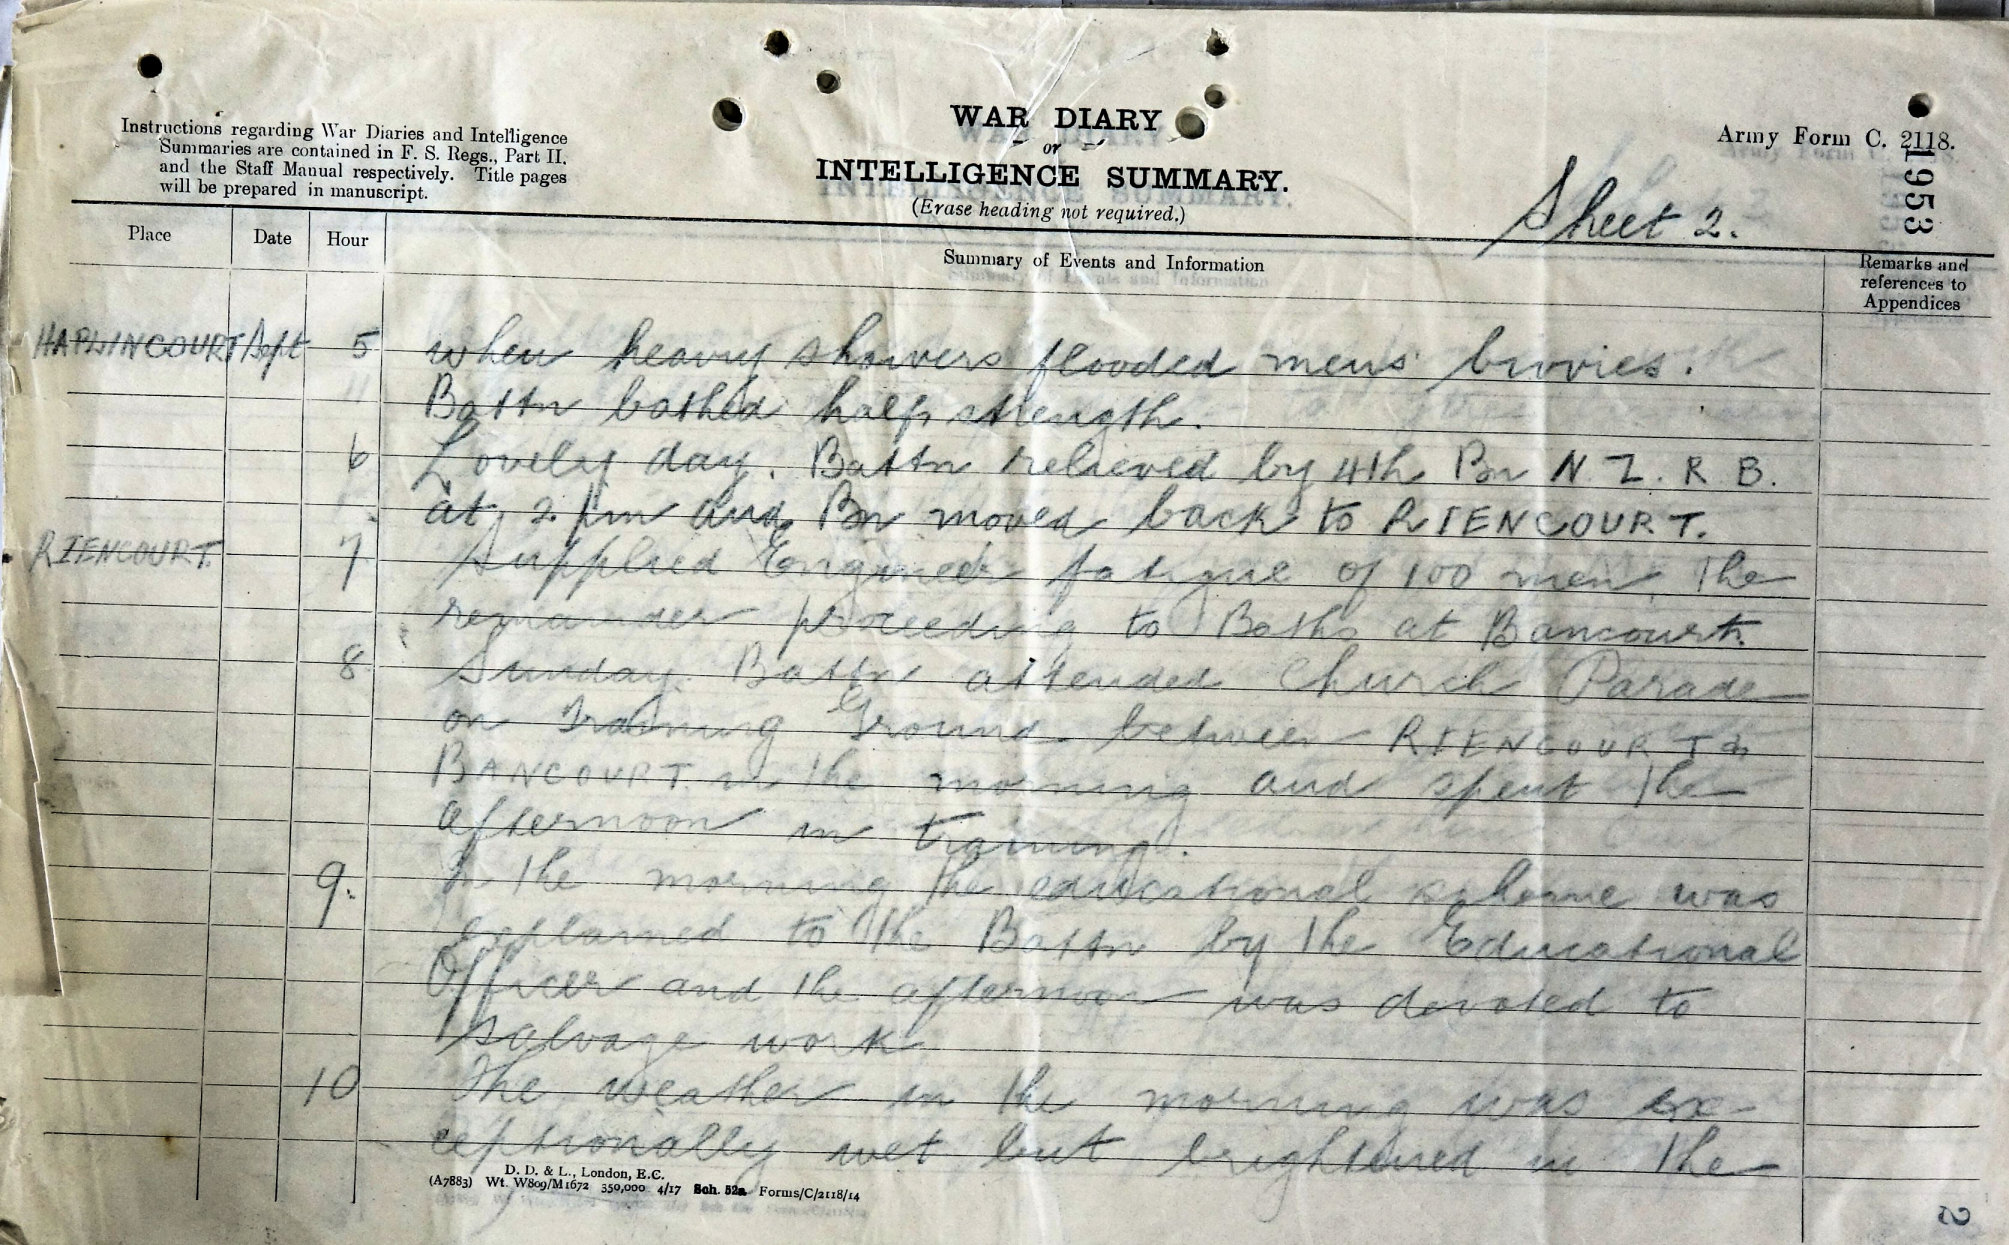 Instructions regarding War Diaries and Intelligence
Summaries are contained in F. S. Regs., Part II.
and the Staff Manual respectively. Title pages
will be prepared in manuscript.
WAR DIARY
or
INTELLIGENCE SUMMARY.
(Erase heading not required.)
Army Form C. 2118.
1953
Sheet 2.
Place Date Hour Summary of Events and Information Remarks and
references to
Appendices
HAPLINCOURT Sept 5 when heavy showers flooded men's bivvies.
Battn bathed half strength.
6 Lovely day. Battn relieved by 4th Bn N.Z.R.B.
at 2 pm and Bn moved back to RIENCOURT.
RIENCOURT. 7 Supplied Engineer fatigue of 100 men, the
remainder proceeding to Baths at Bancourt.
8 Sunday. Battn attended Church Parade
on Training Ground between RIENCOURT &
BANCOURT in the morning and spent the
afternoon in training.
9. In the morning the educational scheme was
explained to the Battn by the Educational
Officer and the afternoon was devoted to
salvage work
10 The weather in the morning was ex-
ceptionally wet but brightened in the
D. D. & L., London, E.C.
(A7883) Wt. W809/M1672 350,000 4/17 Sch. 52a Forms/C/2118/14
2